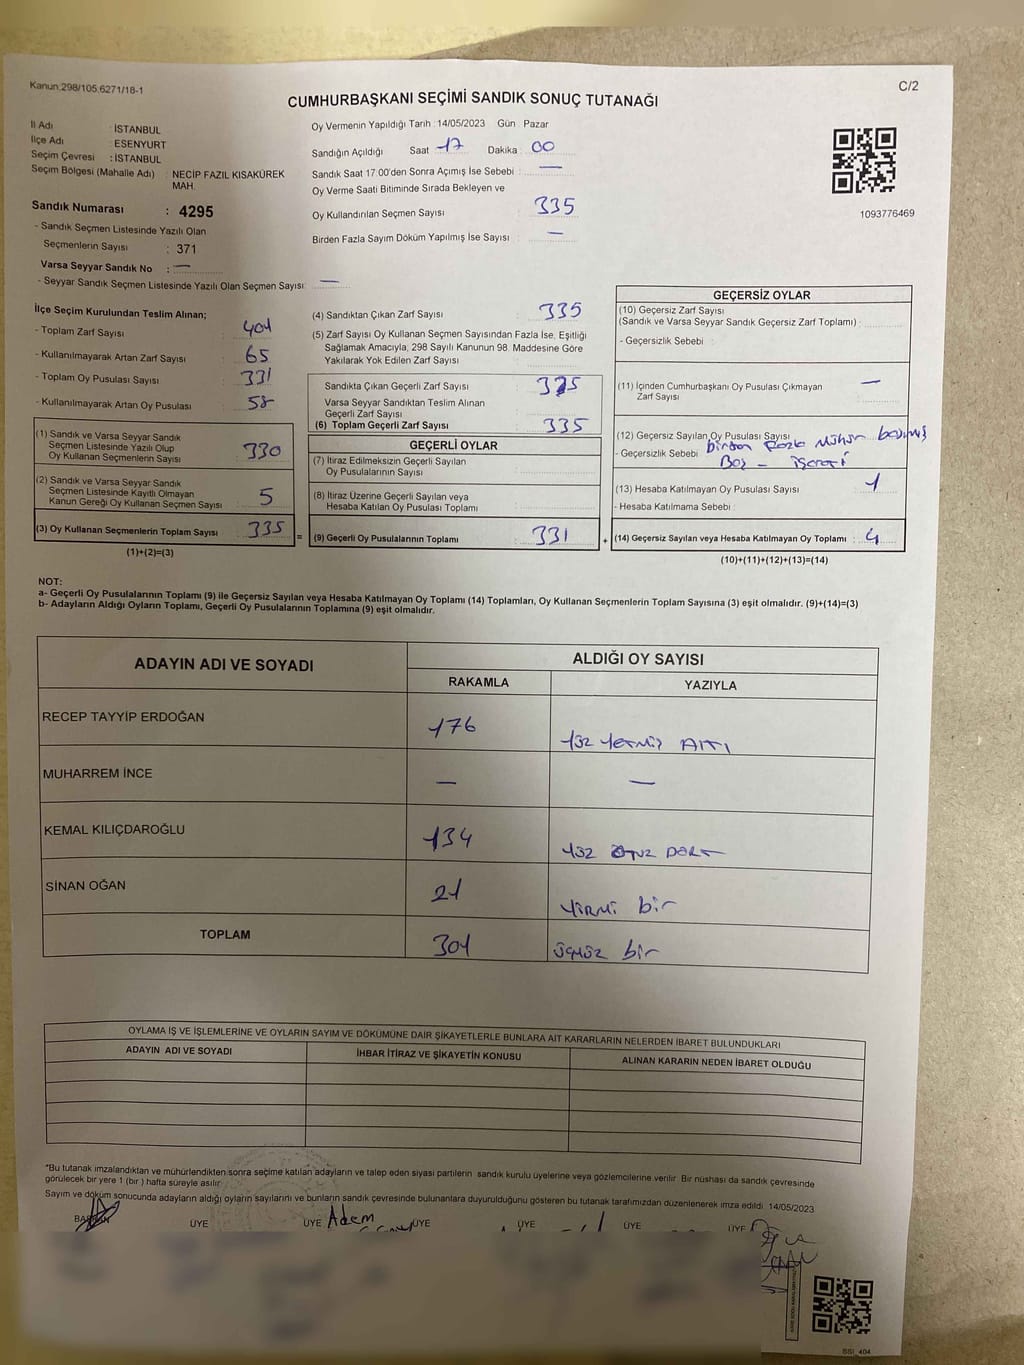 Kanun:298/105,6271/18-1
C/2
CUMHURBAŞKANI SEÇİMİ SANDIK SONUÇ TUTANAĞI
İl Adı : İSTANBUL
İlçe Adı : ESENYURT
Seçim Çevresi : İSTANBUL
Seçim Bölgesi (Mahalle Adı) : NECİP FAZIL KISAKÜREK
MAH.
Sandık Numarası : 4295
- Sandık Seçmen Listesinde Yazılı Olan
Seçmenlerin Sayısı : 371
Varsa Seyyar Sandık No : —
- Seyyar Sandık Seçmen Listesinde Yazılı Olan Seçmen Sayısı: —
Oy Vermenin Yapıldığı Tarih :14/05/2023 Gün : Pazar
Sandığın Açıldığı Saat 17 Dakika : 00
Sandık Saat 17:00'den Sonra Açımış İse Sebebi : —
Oy Verme Saati Bitiminde Sırada Bekleyen ve
Oy Kullandırılan Seçmen Sayısı : 335
Birden Fazla Sayım Döküm Yapılmış İse Sayısı : —
1093776469
İlçe Seçim Kurulundan Teslim Alınan;
- Toplam Zarf Sayısı : 401
- Kullanılmayarak Artan Zarf Sayısı : 65
- Toplam Oy Pusulası Sayısı : 331
- Kullanılmayarak Artan Oy Pusulası : 58
(1) Sandık ve Varsa Seyyar Sandık
Seçmen Listesinde Yazılı Olup
Oy Kullanan Seçmenlerin Sayısı : 330
(2) Sandık ve Varsa Seyyar Sandık
Seçmen Listesinde Kayıtlı Olmayan
Kanun Gereği Oy Kullanan Seçmen Sayısı : 5
(3) Oy Kullanan Seçmenlerin Toplam Sayısı : 335
(1)+(2)=(3)
=
(4) Sandıktan Çıkan Zarf Sayısı : 335
(5) Zarf Sayısı Oy Kullanan Seçmen Sayısından Fazla İse, Eşitliği
Sağlamak Amacıyla, 298 Sayılı Kanunun 98. Maddesine Göre
Yakılarak Yok Edilen Zarf Sayısı :
Sandıkta Çıkan Geçerli Zarf Sayısı : 335
Varsa Seyyar Sandıktan Teslim Alınan
Geçerli Zarf Sayısı :
(6) Toplam Geçerli Zarf Sayısı : 335
GEÇERLİ OYLAR
(7) İtiraz Edilmeksizin Geçerli Sayılan
Oy Pusulalarının Sayısı :
(8) İtiraz Üzerine Geçerli Sayılan veya
Hesaba Katılan Oy Pusulası Toplamı :
(9) Geçerli Oy Pusulalarının Toplamı : 331
+
GEÇERSİZ OYLAR
(10) Geçersiz Zarf Sayısı
(Sandık ve Varsa Seyyar Sandık Geçersiz Zarf Toplamı) :
- Geçersizlik Sebebi :
(11) İçinden Cumhurbaşkanı Oy Pusulası Çıkmayan
Zarf Sayısı : —
(12) Geçersiz Sayılan Oy Pusulası Sayısı :
- Geçersizlik Sebebi : birden fazla mühür basılmış
Boş - işaretli
(13) Hesaba Katılmayan Oy Pusulası Sayısı : 1
- Hesaba Katılmama Sebebi :
(14) Geçersiz Sayılan veya Hesaba Katılmayan Oy Toplamı : 4
(10)+(11)+(12)+(13)=(14)
NOT:
a- Geçerli Oy Pusulalarının Toplamı (9) ile Geçersiz Sayılan veya Hesaba Katılmayan Oy Toplamı (14) Toplamları, Oy Kullanan Seçmenlerin Toplam Sayısına (3) eşit olmalıdır. (9)+(14)=(3)
b- Adayların Aldığı Oyların Toplamı, Geçerli Oy Pusulalarının Toplamına (9) eşit olmalıdır.
ADAYIN ADI VE SOYADI
ALDIĞI OY SAYISI
RAKAMLA YAZIYLA
RECEP TAYYİP ERDOĞAN 176 Yüz Yetmiş Altı
MUHARREM İNCE — —
KEMAL KILIÇDAROĞLU 134 Yüz Otuz Dört
SİNAN OĞAN 21 Yirmi bir
TOPLAM 301 üçyüz bir
OYLAMA İŞ VE İŞLEMLERİNE VE OYLARIN SAYIM VE DÖKÜMÜNE DAİR ŞİKAYETLERLE BUNLARA AİT KARARLARIN NELERDEN İBARET BULUNDUKLARI
ADAYIN ADI VE SOYADI İHBAR İTİRAZ VE ŞİKAYETİN KONUSU ALINAN KARARIN NEDEN İBARET OLDUĞU
*Bu tutanak imzalandıktan ve mühürlendikten sonra seçime katılan adayların ve talep eden siyasi partilerin sandık kurulu üyelerine veya gözlemcilerine verilir. Bir nüshası da sandık çevresinde
görülecek bir yere 1 (bir ) hafta süreyle asılır.
Sayım ve döküm sonucunda adayların aldığı oyların sayılarını ve bunların sandık çevresinde bulunanlara duyurulduğunu gösteren bu tutanak tarafımızdan düzenlenerek imza edildi. 14/05/2023
BAŞKAN ÜYE ÜYE Adem ÜYE ÜYE ÜYE ÜYE
SSI_404